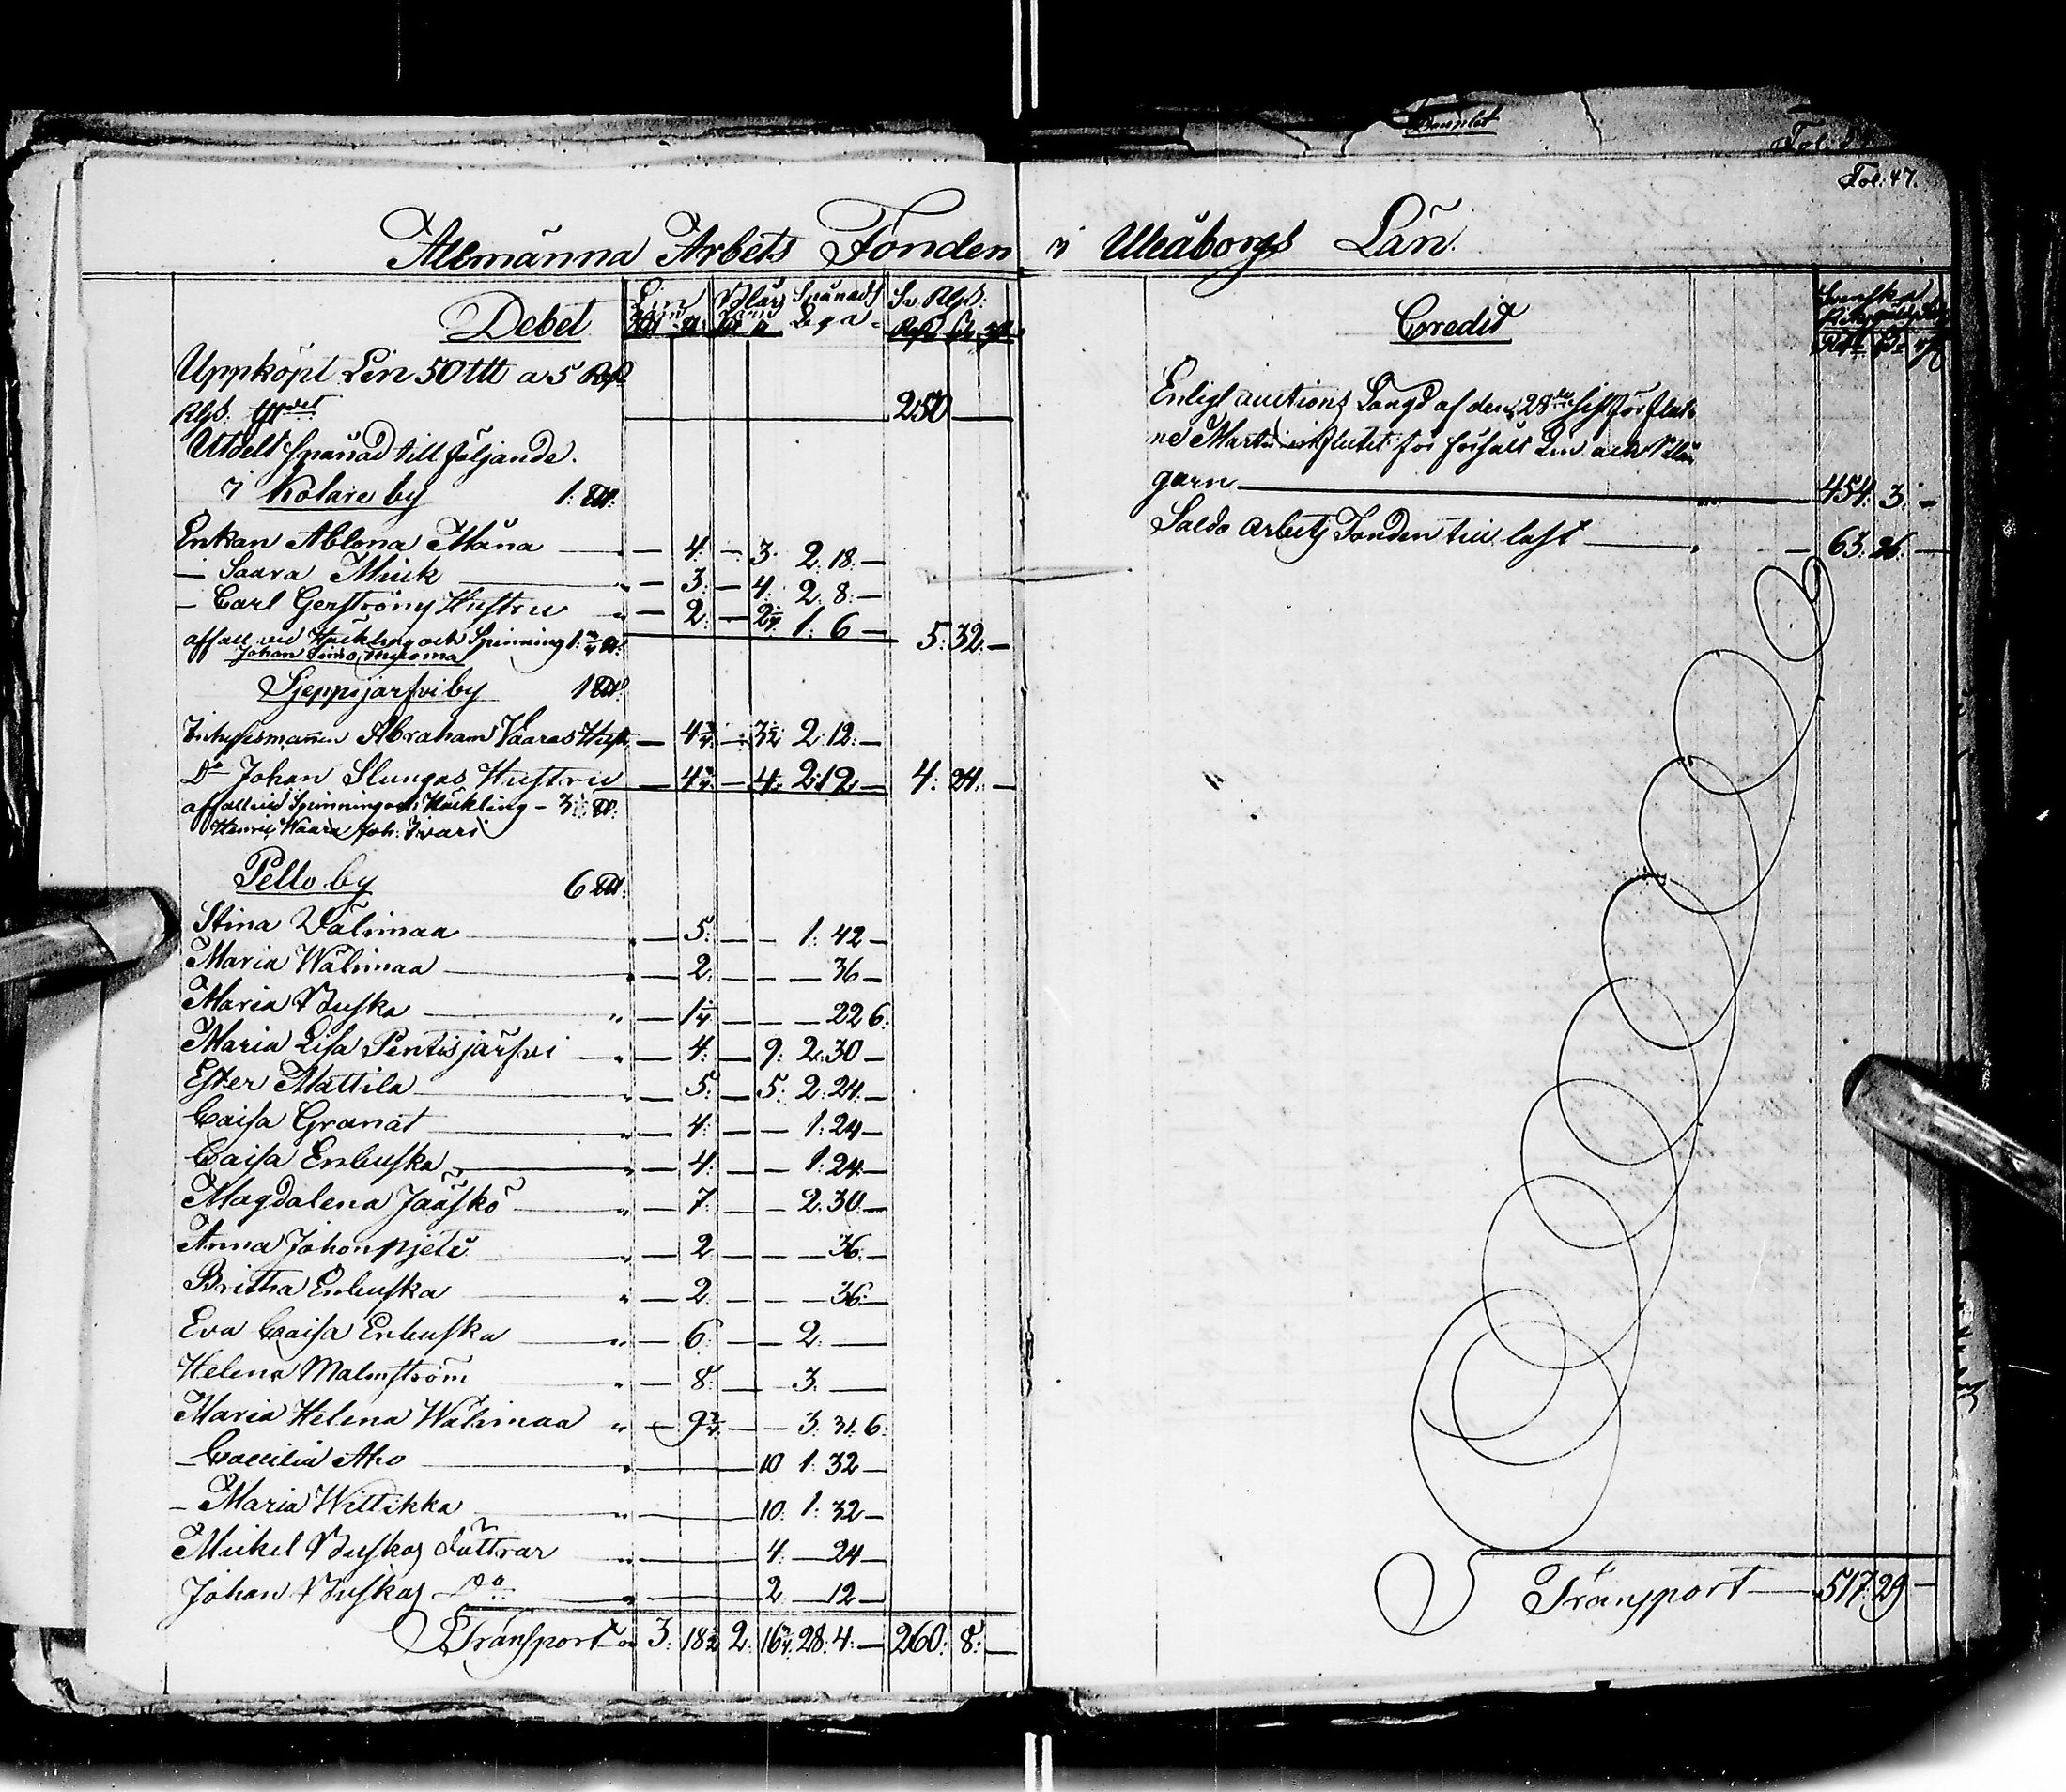 Fol: 47.
Allmänna Arbets Fonden i Uleåborgs Län.
Debet
Lin
Blår
Spånads
Sv. Rgs:
Uppköpt Lin 50 ttt a 5 Rdr
Rgs.
250
Utdelt spånad till följande.
i Kolare by 1: ttt:
Enkan Ablona Mäna — 4: — 3. 2: 18: —
— Saara Muik — 3: — 4: 2: 8: —
— Carl Gerströms Hustru — 2: — 2 1/4 1: 6 —
affall vid Häckling och Spinning 5: 32: —
Johan
Sjeppijärfvi by 1 ttt:
Inhysesmannen Abraham Vaaras Hust — 4 3/4 — 3 1/2 2: 12: —
Do Johan Slungas Hustru — 4 3/4 — 4: 2: 12 — 4: 24: —
affall vid Spinning och Häckling
Henric Waara Joh:
Pello by 6 ttt:
Stina Välimaa — 5: — — 1: 42 —
Maria Wälimaa — 2: — — — 36 —
Maria Buska — 1 1/4 — — — 22 6:
Maria Lisa Pentisjärfvi — 4: — 9: 2: 30 —
Ester Mattila — 5: — 5: 2: 24: —
Caisa Granat — 4: — — 1: 24 —
Caisa Enbuska — 4: — — 1: 24: —
Magdalena Jääskö — 7: — — 2: 30: —
Anna Johonpjeti — 2: — — — 36: —
Britha Enbuska — 2: — — — 36: —
Eva Caisa Enbuska — 6: — 2: —
Helena Malmström — 8: — — 3: —
Maria Helena Wälimaa — 9 3/4 — — 3: 31: 6:
— Caecilia Aho — 10 1: 32 —
— Maria Wittikka — 10: 1: 32 —
Mickel Buskas Döttrar — 4: — 24 —
Johan Buskas Do — 2: — 12 —
Transport 3: 18 1/2 2: 16 3/4 28: 4: — 260: 8: —
Credit
Svenska
Enligt auctions Längd af den 28de sistförflut
ne Martii influtet för försåldt Lin och Blår
garn — 454: 3: —
Saldo Arbets Fonden till last — 63: 26: —
Transport — 517: 29 —